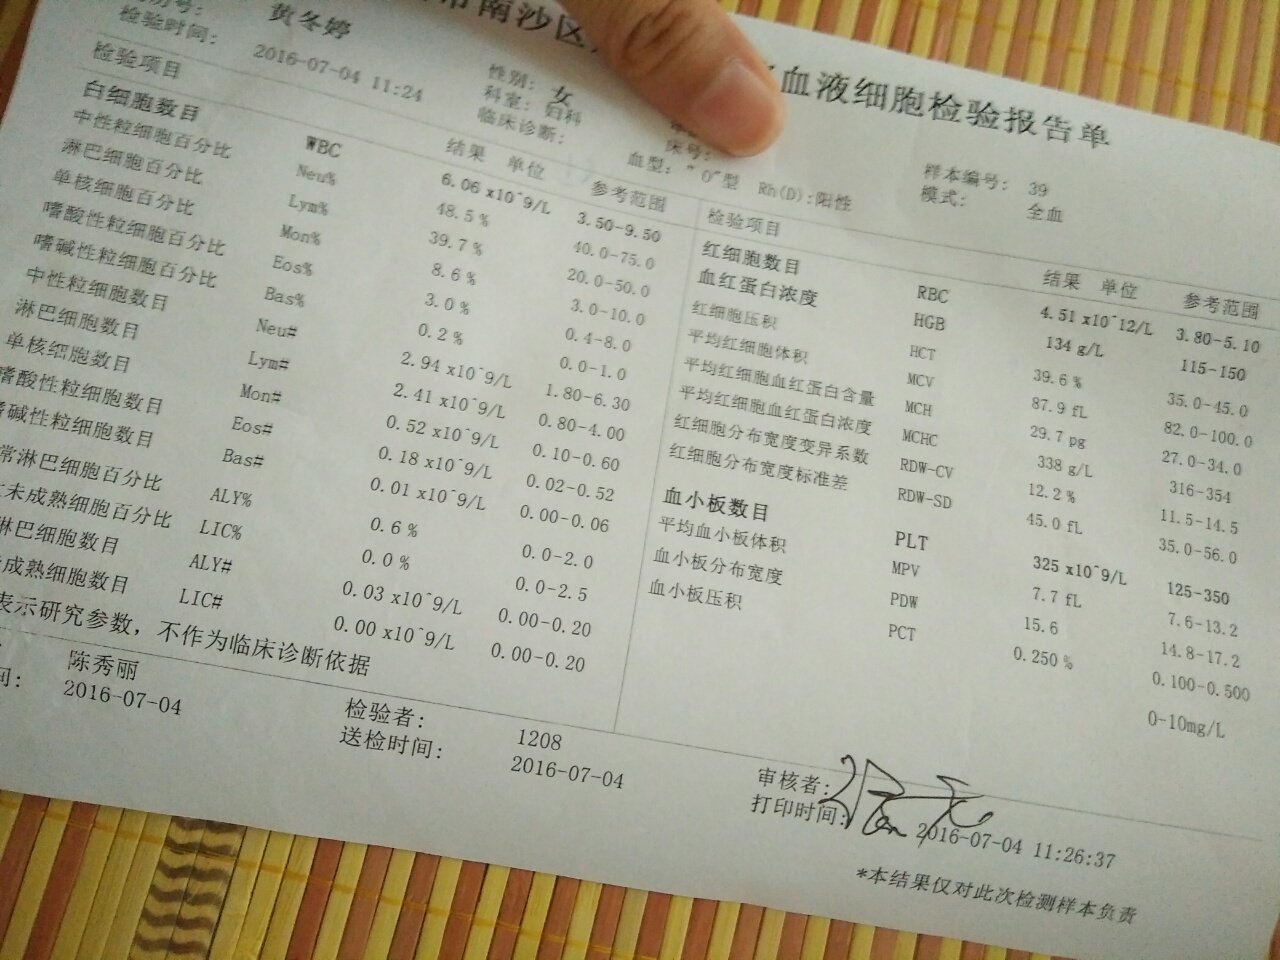 市南沙区
血液细胞检验报告单
历号: 黄冬婷
检验时间: 2016-07-04 11:24
性别: 女
科室: 妇科
临床诊断:
床号:
血型: "O"型 Rh(D):阳性
样本编号: 39
模式: 全血
检验项目 结果 单位 参考范围
白细胞数目 WBC 6.06 x10^9/L 3.50-9.50
中性粒细胞百分比 Neu% 48.5 % 40.0-75.0
淋巴细胞百分比 Lym% 39.7 % 20.0-50.0
单核细胞百分比 Mon% 8.6 % 3.0-10.0
嗜酸性粒细胞百分比 Eos% 3.0 % 0.4-8.0
嗜碱性粒细胞百分比 Bas% 0.2 % 0.0-1.0
中性粒细胞数目 Neu# 2.94 x10^9/L 1.80-6.30
淋巴细胞数目 Lym# 2.41 x10^9/L 0.80-4.00
单核细胞数目 Mon# 0.52 x10^9/L 0.10-0.60
嗜酸性粒细胞数目 Eos# 0.18 x10^9/L 0.02-0.52
嗜碱性粒细胞数目 Bas# 0.01 x10^9/L 0.00-0.06
常淋巴细胞百分比 ALY% 0.6 % 0.0-2.0
未成熟细胞百分比 LIC% 0.0 % 0.0-2.5
淋巴细胞数目 ALY# 0.03 x10^9/L 0.00-0.20
成熟细胞数目 LIC# 0.00 x10^9/L 0.00-0.20
表示研究参数, 不作为临床诊断依据
检验项目 结果 单位 参考范围
红细胞数目 RBC 4.51 x10^12/L 3.80-5.10
血红蛋白浓度 HGB 134 g/L 115-150
红细胞压积 HCT 39.6 % 35.0-45.0
平均红细胞体积 MCV 87.9 fL 82.0-100.0
平均红细胞血红蛋白含量 MCH 29.7 pg 27.0-34.0
平均红细胞血红蛋白浓度 MCHC 338 g/L 316-354
红细胞分布宽度变异系数 RDW-CV 12.2 % 11.5-14.5
红细胞分布宽度标准差 RDW-SD 45.0 fL 35.0-56.0
血小板数目 PLT 325 x10^9/L 125-350
平均血小板体积 MPV 7.7 fL 7.6-13.2
血小板分布宽度 PDW 15.6 14.8-17.2
血小板压积 PCT 0.250 % 0.100-0.500
0-10mg/L
陈秀丽 检验者: 1208 审核者:
间: 2016-07-04 送检时间: 2016-07-04 打印时间: 2016-07-04 11:26:37
*本结果仅对此次检测样本负责